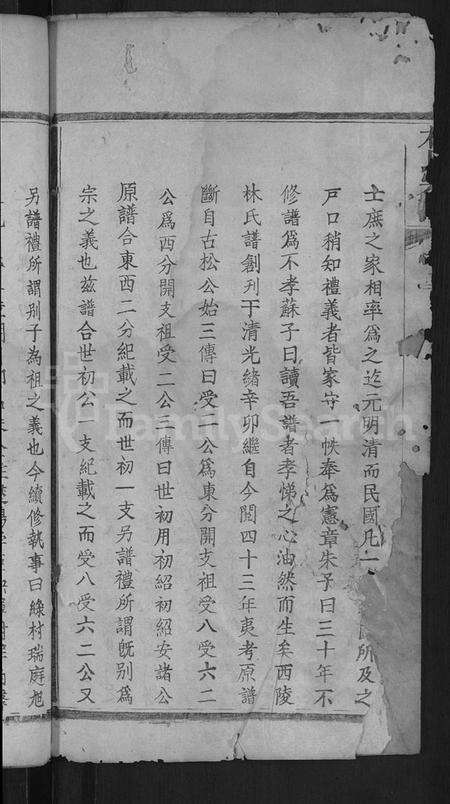 士庶之家相率為之迄元明清而民國凡一所及之
戸口稍知禮義者皆家守一帙奉為憲章朱子曰三十年不
修譜為不孝蘇子曰讀吾譜者孝悌之心油然而生矣西陵
林氏譜創刋于清光緒辛卯繼自今閲四十三年夷考原譜
斷自古松公始三傳曰受一公為東分開支祖受八受六二
公為西分開支祖受二公一傳曰世初用初紹初紹安諸公
原譜合東西二分紀載之而世初一支另譜禮所謂旣别為
宗之義也兹譜合世初公一支紀載之而受八受六二公又
另譜禮所謂别子為祖之義也今續修執事曰線村瑞庭旭
FamilySearch